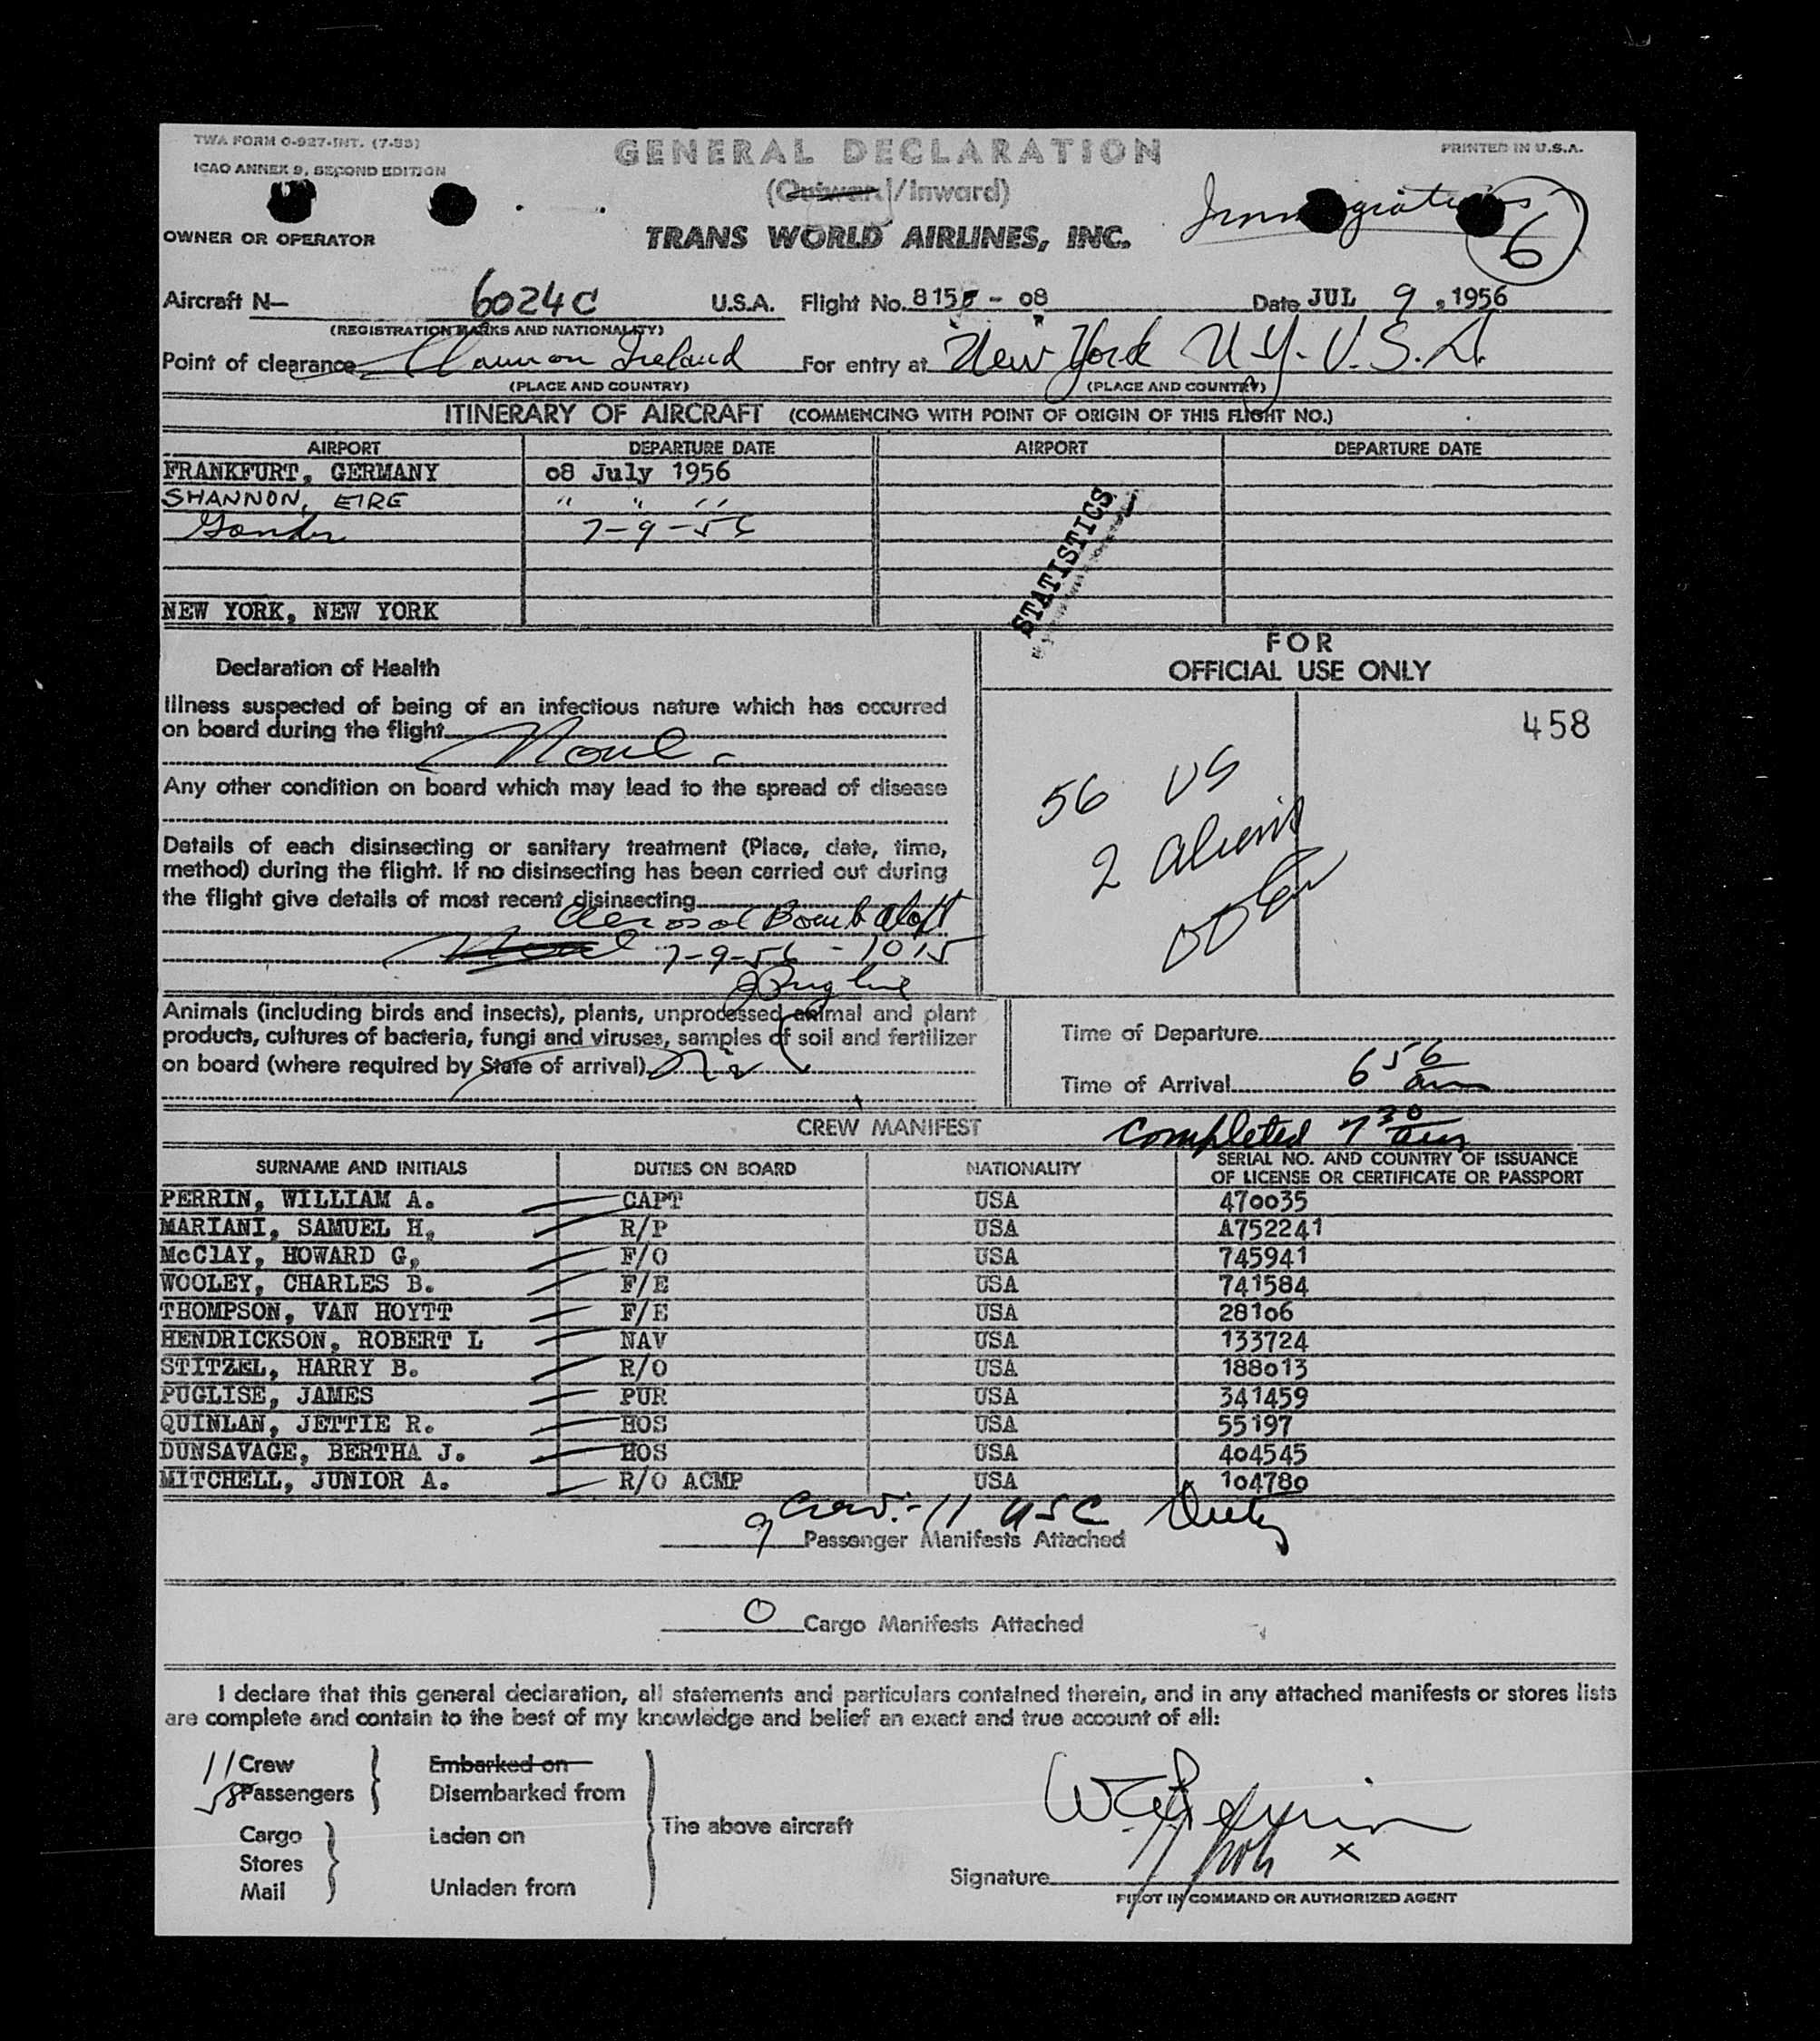 TWA FORM O-927-INT. (7-55)
GENERAL DECLARATION
PRINTED IN U.S.A.
ICAO ANNEX 9, SECOND EDITION
(Outward/Inward)
Immigration
6
OWNER OR OPERATOR
TRANS WORLD AIRLINES, INC.
Aircraft N— 6024C U.S.A. Flight No. 815 - 08 Date JUL 9, 1956
(REGISTRATION MARKS AND NATIONALITY)
Point of clearance Shannon Ireland For entry at New York N.Y. U.S.A.
(PLACE AND COUNTRY) (PLACE AND COUNTRY)
ITINERARY OF AIRCRAFT (COMMENCING WITH POINT OF ORIGIN OF THIS FLIGHT NO.)
AIRPORT DEPARTURE DATE AIRPORT DEPARTURE DATE
FRANKFURT, GERMANY 08 July 1956
SHANNON, EIRE " " "
Gander 7-9-56
STATISTICS
NEW YORK, NEW YORK
FOR
OFFICIAL USE ONLY
Declaration of Health
Illness suspected of being of an infectious nature which has occurred
on board during the flight None
458
56 US
2 aliens
Any other condition on board which may lead to the spread of disease
Details of each disinsecting or sanitary treatment (Place, date, time,
method) during the flight. If no disinsecting has been carried out during
the flight give details of most recent disinsecting
Aerosol Bomb aloft
None 7-9-56 - 1015
J Puglise
Animals (including birds and insects), plants, unprocessed animal and plant
products, cultures of bacteria, fungi and viruses, samples of soil and fertilizer
on board (where required by State of arrival)
Time of Departure
Time of Arrival 6 56 am
CREW MANIFEST
Completed 7 30 am
SURNAME AND INITIALS DUTIES ON BOARD NATIONALITY SERIAL NO. AND COUNTRY OF ISSUANCE
OF LICENSE OR CERTIFICATE OR PASSPORT
PERRIN, WILLIAM A. CAPT USA 470035
MARIANI, SAMUEL H. R/P USA A752241
McClAY, HOWARD G. F/O USA 745941
WOOLEY, CHARLES B. F/E USA 741584
THOMPSON, VAN HOYTT F/E USA 28106
HENDRICKSON, ROBERT L NAV USA 133724
STITZEL, HARRY B. R/O USA 188013
PUGLISE, JAMES PUR USA 341459
QUINLAN, JETTIE R. HOS USA 55197
DUNSAVAGE, BERTHA J. HOS USA 404545
MITCHELL, JUNIOR A. R/O ACMP USA 104780
Crew:- 11 USC
9 Passenger Manifests Attached
0 Cargo Manifests Attached
I declare that this general declaration, all statements and particulars contained therein, and in any attached manifests or stores lists
are complete and contain to the best of my knowledge and belief an exact and true account of all:
11 Crew
58 Passengers
Embarked on
Disembarked from
Cargo
Stores
Mail
Laden on
Unladen from
The above aircraft
W A Perrin
X
Signature
PILOT IN COMMAND OR AUTHORIZED AGENT